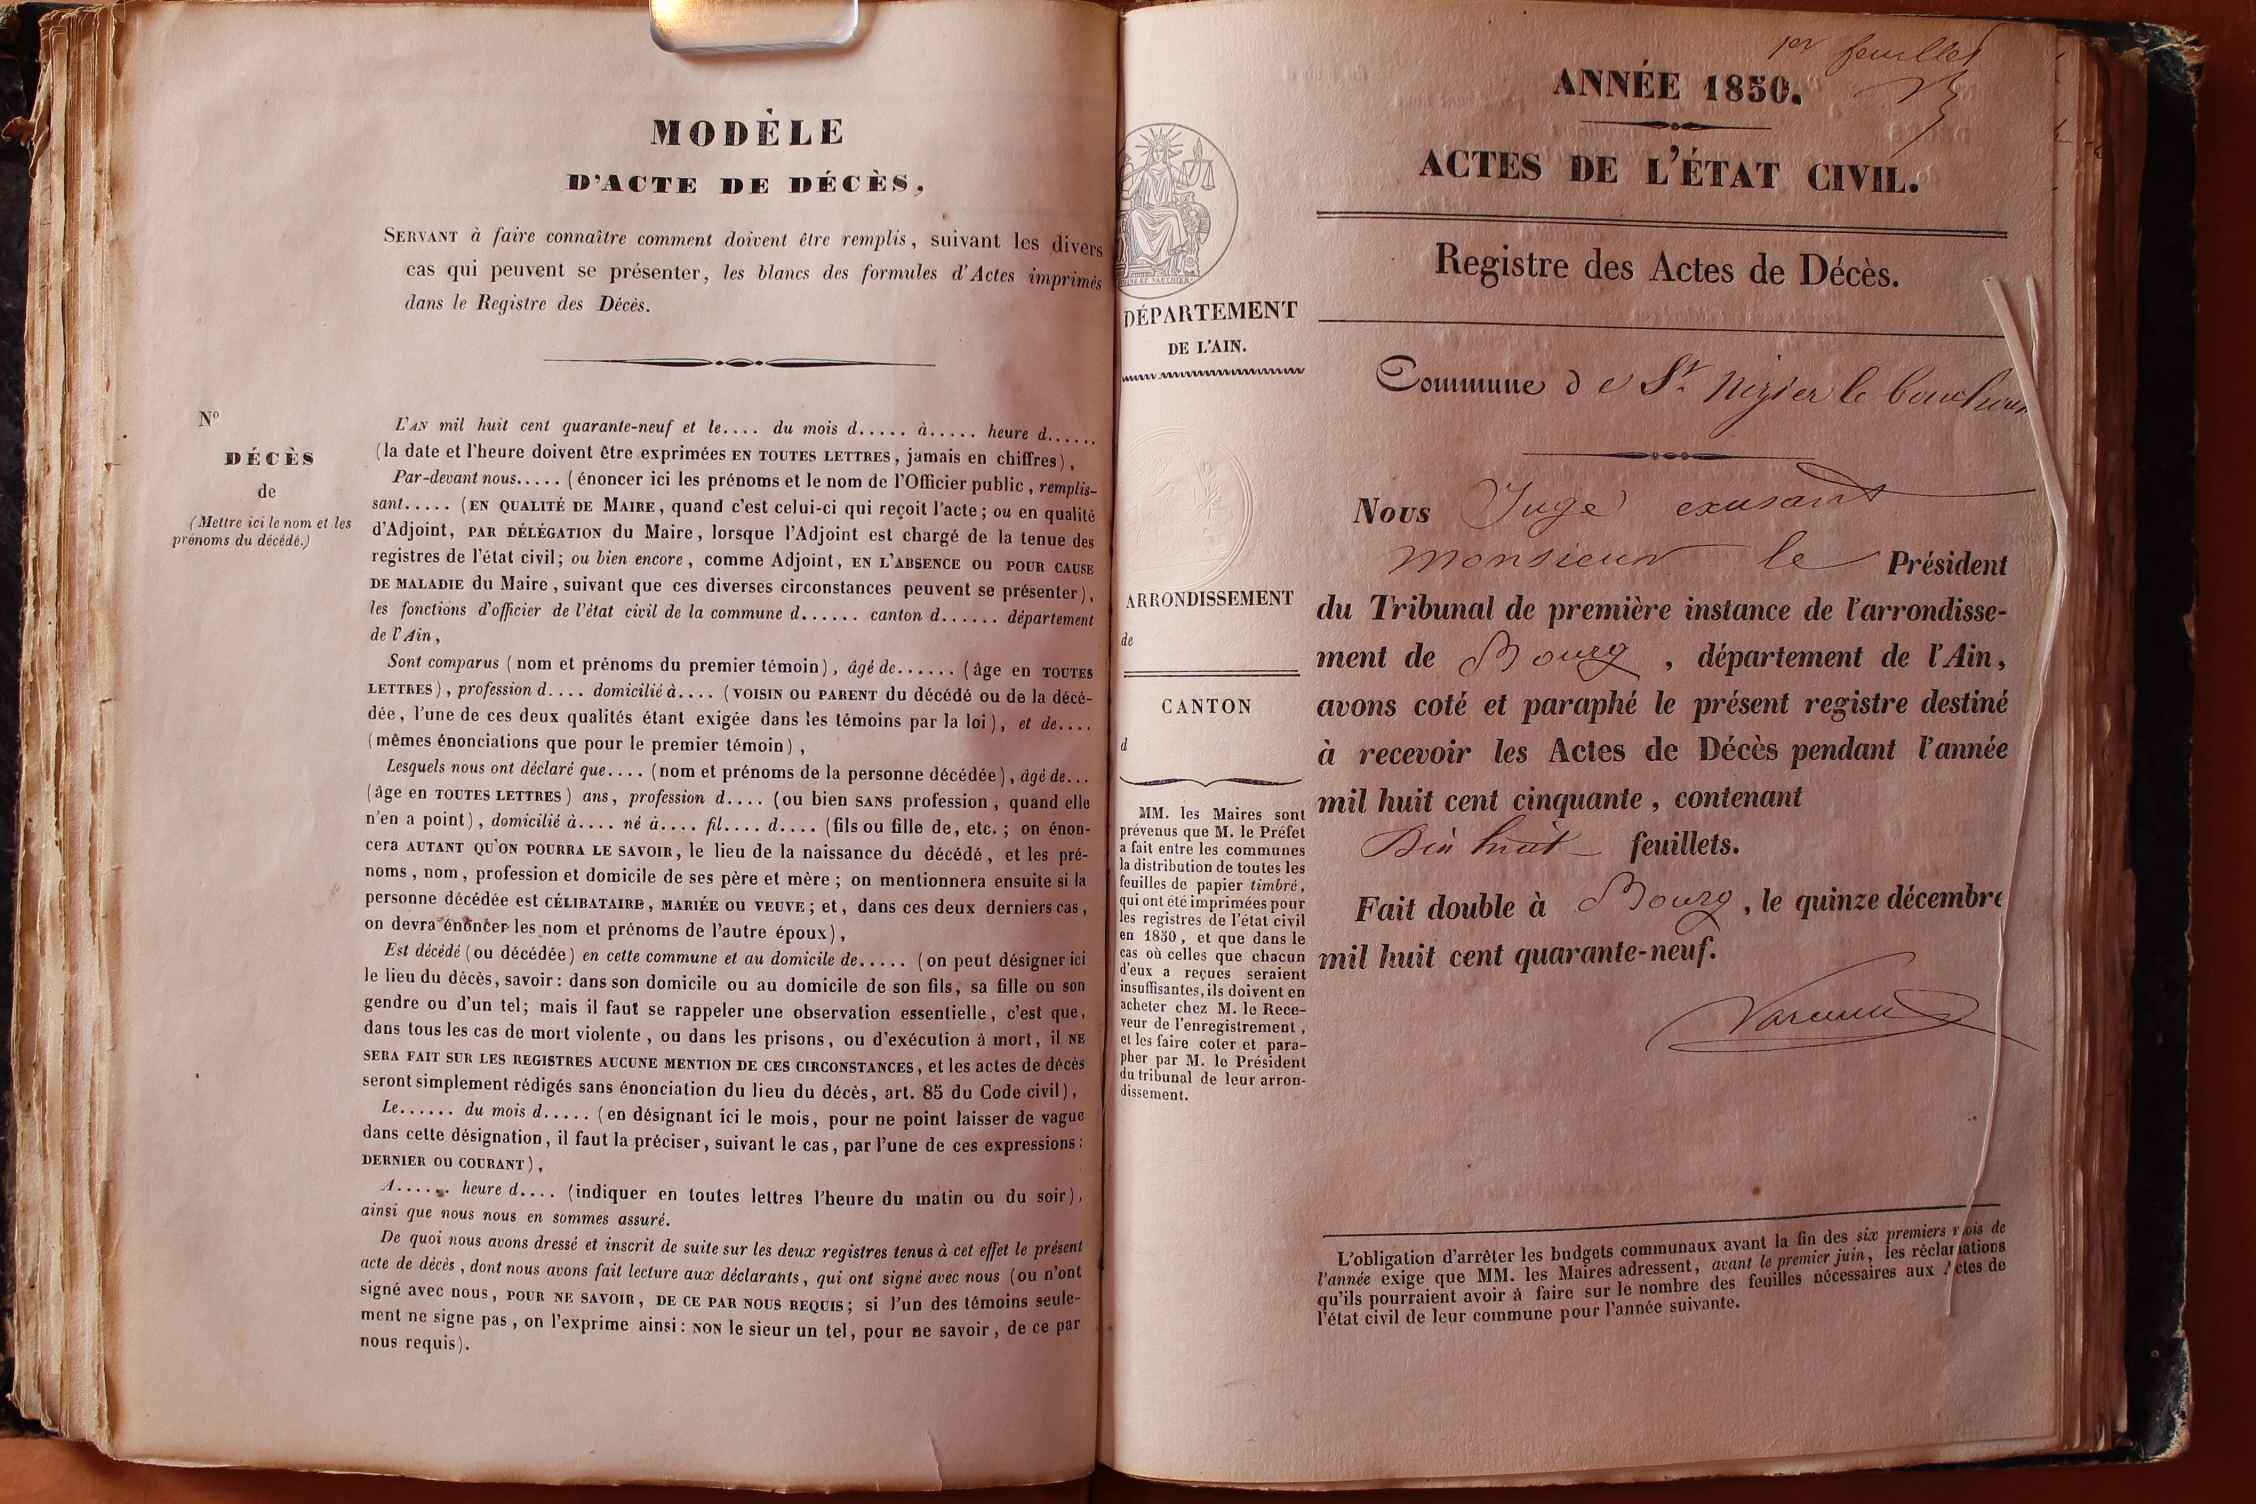 MODÈLE
D'ACTE DE DÉCÈS,
SERVANT à faire connaître comment doivent être remplis, suivant les divers
cas qui peuvent se présenter, les blancs des formules d'Actes imprimés
dans le Registre des Décès.
No
DÉCÈS
de
(Mettre ici le nom et les
prénoms du décédé.)
L'AN mil huit cent quarante-neuf et le.... du mois d..... à..... heure d......
(la date et l'heure doivent être exprimées EN TOUTES LETTRES, jamais en chiffres),
Par-devant nous..... (énoncer ici les prénoms et le nom de l'Officier public, remplis-
sant..... (EN QUALITÉ DE MAIRE, quand c'est celui-ci qui reçoit l'acte; ou en qualité
d'Adjoint, PAR DÉLÉGATION du Maire, lorsque l'Adjoint est chargé de la tenue des
registres de l'état civil; ou bien encore, comme Adjoint, EN L'ABSENCE OU POUR CAUSE
DE MALADIE du Maire, suivant que ces diverses circonstances peuvent se présenter),
les fonctions d'officier de l'état civil de la commune d...... canton d...... département
de l'Ain,
Sont comparus (nom et prénoms du premier témoin), âgé de...... (âge en TOUTES
LETTRES), profession d.... domicilié à.... (VOISIN OU PARENT du décédé ou de la décé-
dée, l'une de ces deux qualités étant exigée dans les témoins par la loi), et de....
(mêmes énonciations que pour le premier témoin),
Lesquels nous ont déclaré que.... (nom et prénoms de la personne décédée), âgé de...
(âge en TOUTES LETTRES) ans, profession d.... (ou bien SANS profession, quand elle
n'en a point), domicilié à.... né à.... fil.... d.... (fils ou fille de, etc.; on énon-
cera AUTANT QU'ON POURRA LE SAVOIR, le lieu de la naissance du décédé, et les pré-
noms, nom, profession et domicile de ses père et mère; on mentionnera ensuite si la
personne décédée est CÉLIBATAIRE, MARIÉE OU VEUVE; et, dans ces deux derniers cas,
on devra énoncer les nom et prénoms de l'autre époux),
Est décédé (ou décédée) en cette commune et au domicile de..... (on peut désigner ici
le lieu du décès, savoir: dans son domicile ou au domicile de son fils, sa fille ou son
gendre ou d'un tel; mais il faut se rappeler une observation essentielle, c'est que,
dans tous les cas de mort violente, ou dans les prisons, ou d'exécution à mort, il NE
SERA FAIT SUR LES REGISTRES AUCUNE MENTION DE CES CIRCONSTANCES, et les actes de décès
seront simplement rédigés sans énonciation du lieu du décès, art. 85 du Code civil),
Le...... du mois d..... (en désignant ici le mois, pour ne point laisser de vague
dans cette désignation, il faut la préciser, suivant le cas, par l'une de ces expressions:
DERNIER OU COURANT),
A...... heure d.... (indiquer en toutes lettres l'heure du matin ou du soir),
ainsi que nous nous en sommes assuré.
De quoi nous avons dressé et inscrit de suite sur les deux registres tenus à cet effet le présent
acte de décès, dont nous avons fait lecture aux déclarants, qui ont signé avec nous (ou n'ont
signé avec nous, POUR NE SAVOIR, DE CE PAR NOUS REQUIS; si l'un des témoins seule-
ment ne signe pas, on l'exprime ainsi: NON le sieur un tel, pour ne savoir, de ce par
nous requis).
1er feuillet
ANNÉE 1850.
ACTES DE L'ÉTAT CIVIL.
Registre des Actes de Décès.
DÉPARTEMENT
DE L'AIN.
ARRONDISSEMENT
de
CANTON
d
MM. les Maires sont
prévenus que M. le Préfet
a fait entre les communes
la distribution de toutes les
feuilles de papier timbré,
qui ont été imprimées pour
les registres de l'état civil
en 1850, et que dans le
cas où celles que chacun
d'eux a reçues seraient
insuffisantes, ils doivent en
acheter chez M. le Rece-
veur de l'enregistrement,
et les faire coter et para-
pher par M. le Président
du tribunal de leur arron-
dissement.
Commune de St. Nizier le bouchoux
Nous Juge exusant
monsieur le Président
du Tribunal de première instance de l'arrondisse-
ment de Bourg, département de l'Ain,
avons coté et paraphé le présent registre destiné
à recevoir les Actes de Décès pendant l'année
mil huit cent cinquante, contenant
Dix huit feuillets.
Fait double à Bourg, le quinze décembre
mil huit cent quarante-neuf.
L'obligation d'arrêter les budgets communaux avant la fin des six premiers mois de
l'année exige que MM. les Maires adressent, avant le premier juin, les réclamations
qu'ils pourraient avoir à faire sur le nombre des feuilles nécessaires aux Actes de
l'état civil de leur commune pour l'année suivante.